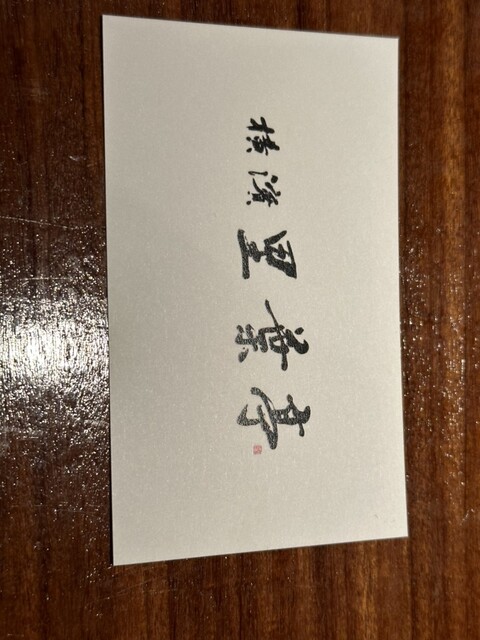 横濱 里葉亭